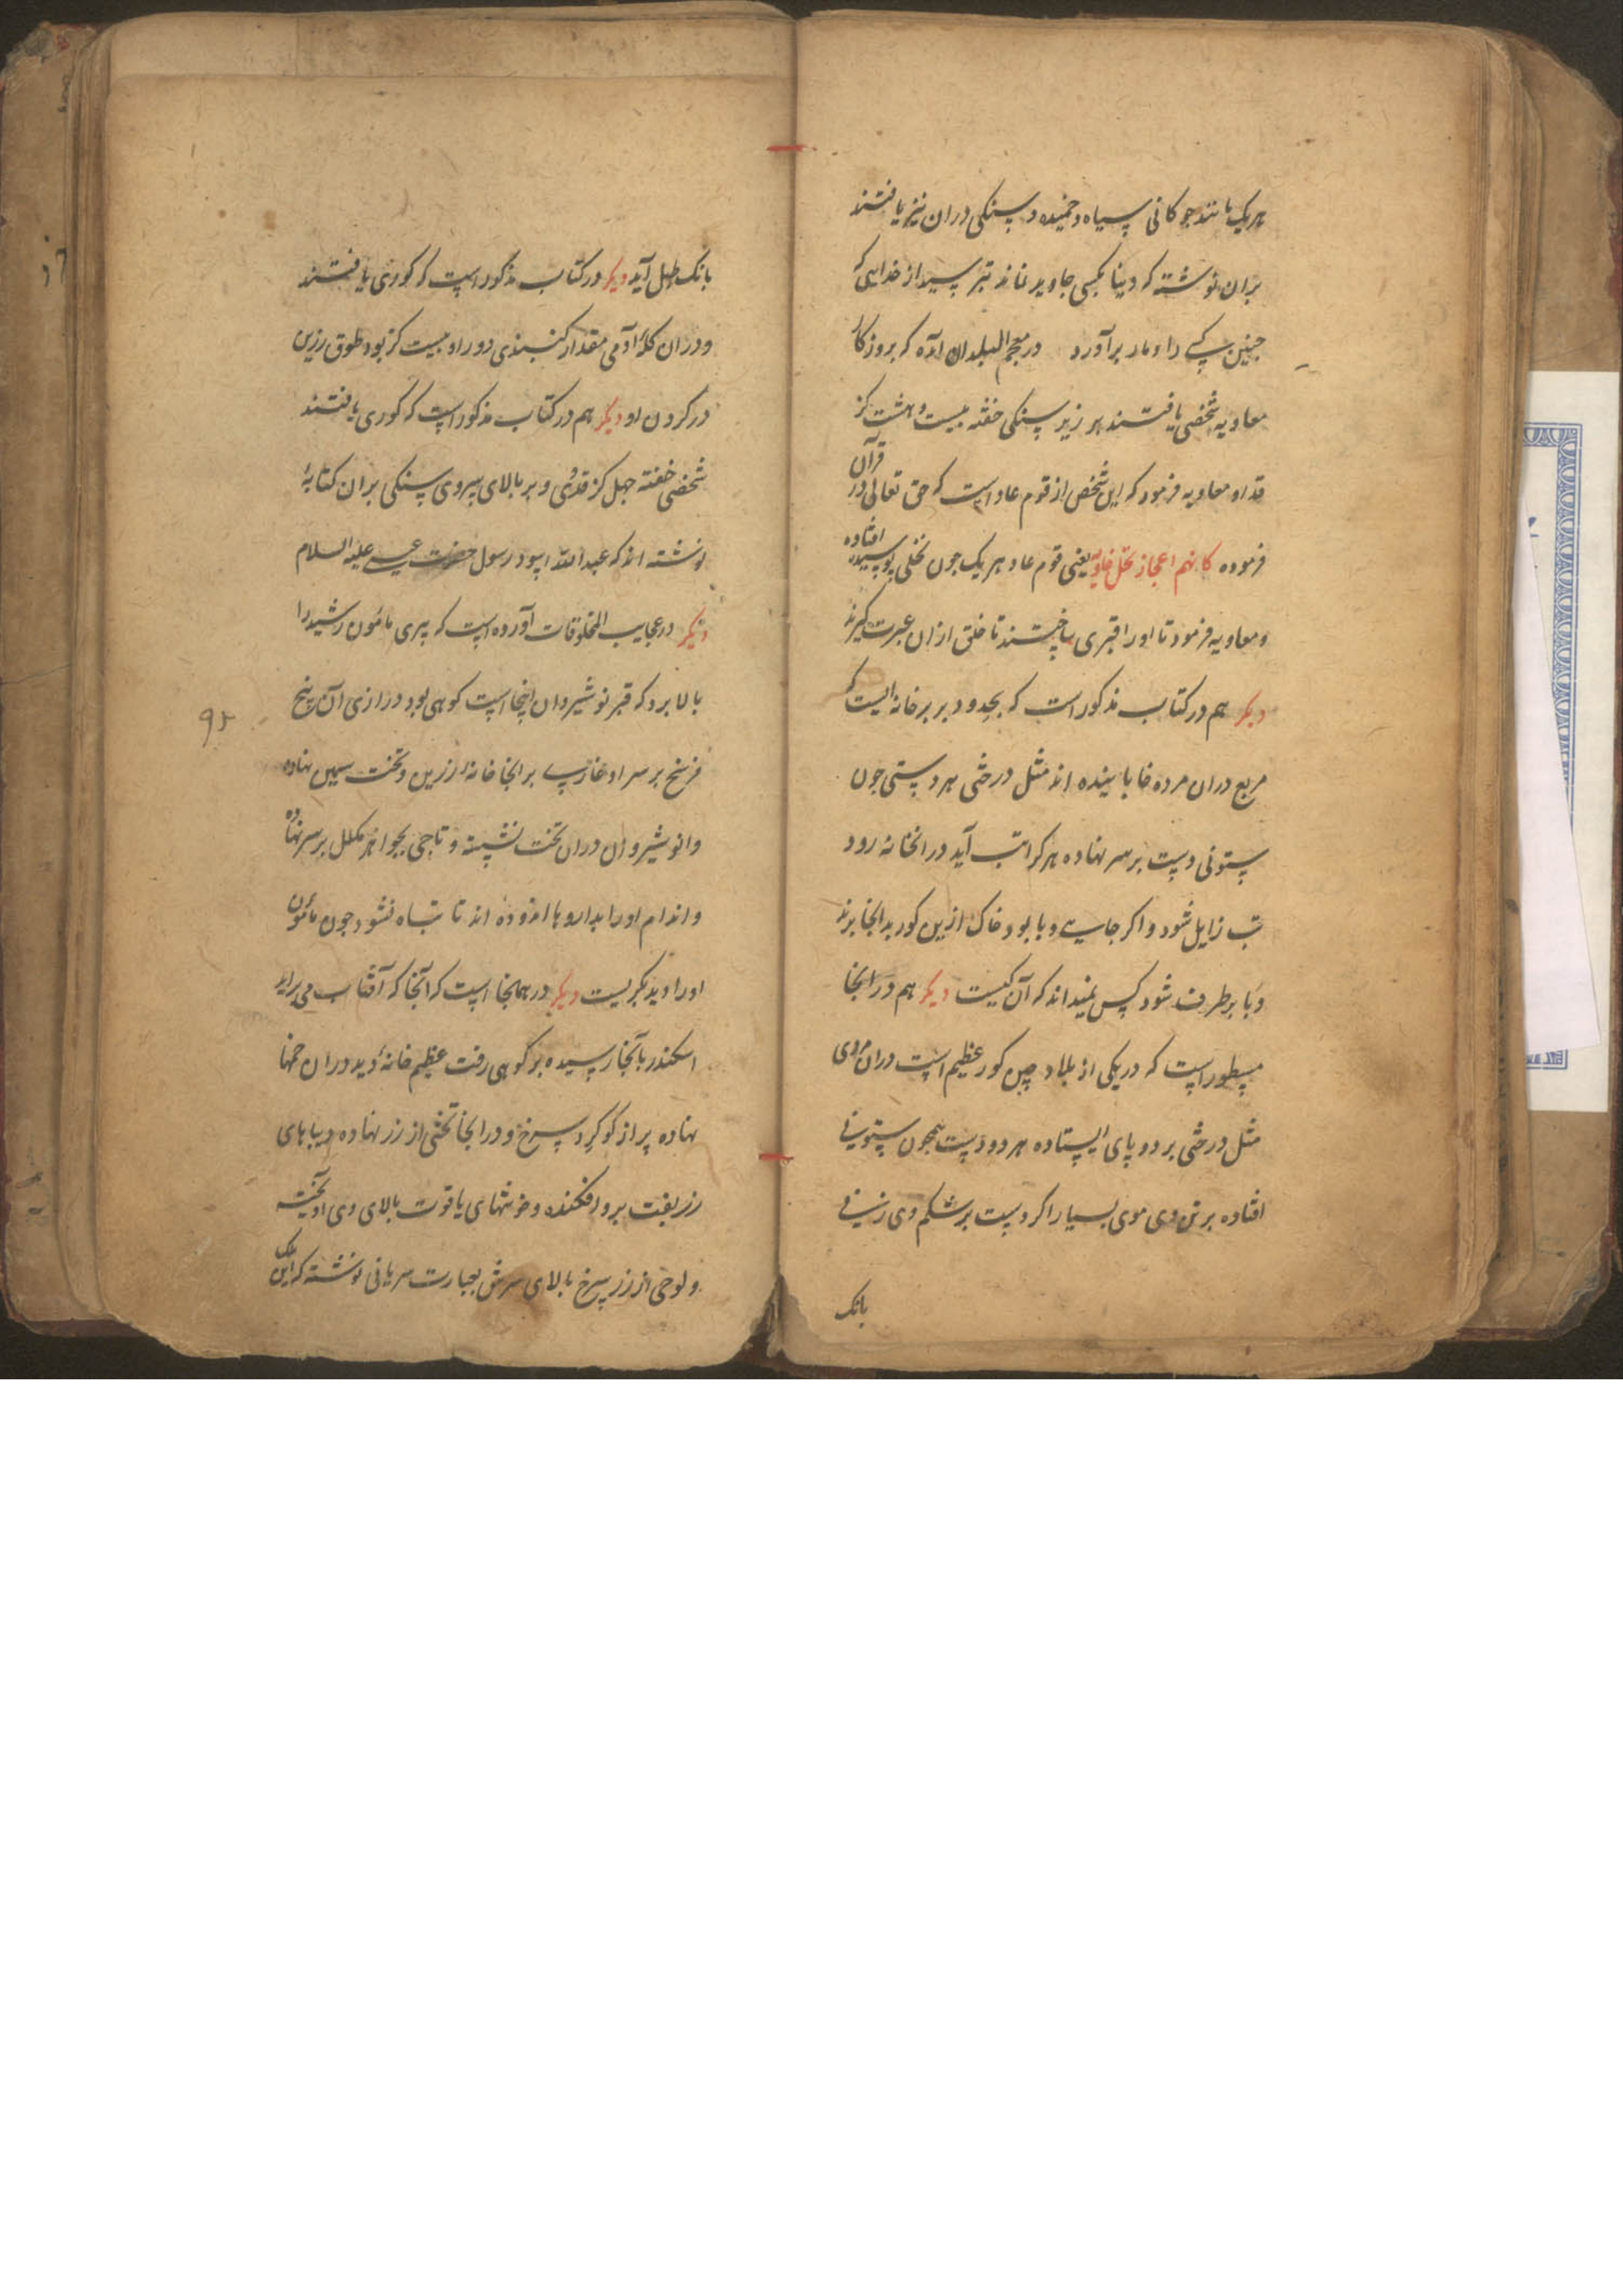 هر یک مانند جوکانی سیاه و خمیده و سنکی دران نیز یافتند
بران نوشته که دینا بکسی جاوید نماند بترسید از خدایی که
جنین کسے را دمار برآورد در معجم البلدان آمده که بروزکار
معاویه شخصی یافتند بر زیر سنکی خفته بیست و هشت کز
قد او معاویه فرمود که این شخص از قوم عاد است که حق تعالی در قرآن
فرموده کانهم اعجاز نخل خاویة یعنی قوم عاد هر یک جون نخلی بوسیده افتاده
و معاویه فرمود تا او را قبری ساختند تا خلق ازان عبرت کیرند
دیکر هم در کتاب مذکور است که بحدود بربر خانه ایست که
مربع دران مرده خابانیده اند مثل درختی هر دستی جون
ستونی دست بر سر نهاده هر کرا تب آید در انخانه رود
تب زایل شود و اکر جایے وبا بود خاک ازین کور بدانجا برند
وبا بر طرف شود کس نمیداند که آن کیست دیکر هم در انجا
مسطور است که در یکی از بلاد چین کور عظیم است دران مردی
مثل درختی بر دو پای ایستاده هر دو دست همجون ستونی
افتاده بر تن وی موی بسیار اکر دست بر شکم وی زنی
بانک
بانک طبل آید دیکر در کتاب مذکور است که کوری یافتند
و دران کلهٔ آدمی مقدار کنبدی دور او بیست کز بود طوق زرین
در کردن او دیکر هم در کتاب مذکور است که کوری یافتند
شخصی خفته جهل کز قد وی و بر بالای سر وی سنکی بران کتابهٔ
نوشته اند که عبد الله اسود رسول حضرت عیسی علیه السلام
دیکر در عجایب المخلوقات آورده است که پیری مامون رشید را
بالا برد که قبر نوشیروان اینجا است کوهی بود درازی آن پنج
فرسخ بر سر او غاریے بر انجا خانهٔ زرین و تخت سیمین نهاده
و انوشیروان دران تخت نشسته و تاجی بجواهر مکلل بر سر نهاده
و اندام او را بداروها اندوده اند تا تباه نشود جون مامون
او را دید بکریست دیکر در همانجا است که آنجا که آفتاب می براید
اسکندر بآنجا رسیده بر کوهی رفت عظیم خانهٔ دید دران خمها
نهاده پر از کوکرد سرخ و در انجا تختی از زر نهاده دیباهای
زربفت برو افکنده و خوشهای یاقوت بالای وی آویخته
و لوحی از زر سرخ بالای سرش بعبارت سریانی نوشته که این ملک